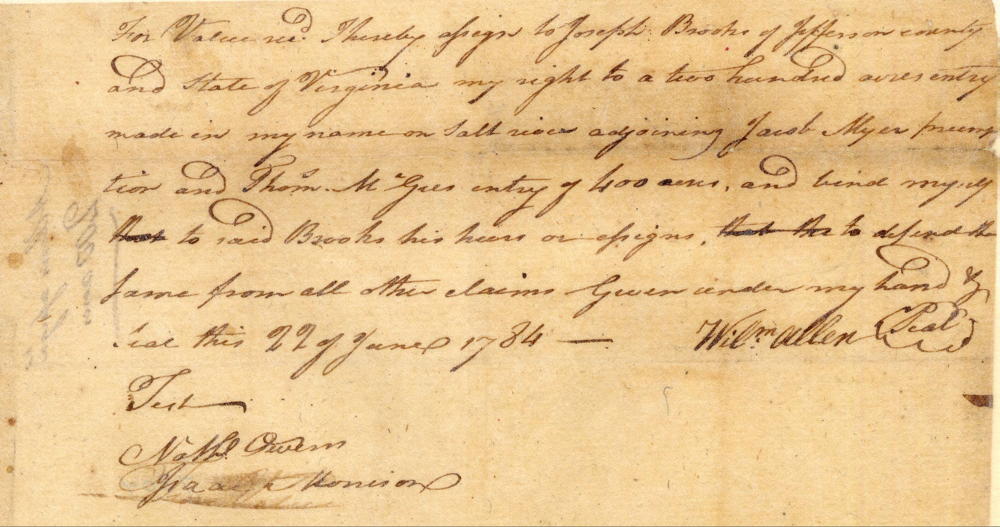 For Value rec.d I hereby assign to Joseph Brooks of Jefferson county
and State of Virginia my right to a two hundred acres entry
made in my name on Salt river adjoining Jacob Myer preemp
tion and Thos. McGees entry of 400 acres, and bind myself
that to said Brooks his heirs or assigns, that the to defend the
same from all other claims Given under my hand &
seal this 22 of June 1784 — Wilm. Allen Seal
Test
Nathl. Owens
Isaac Morrison